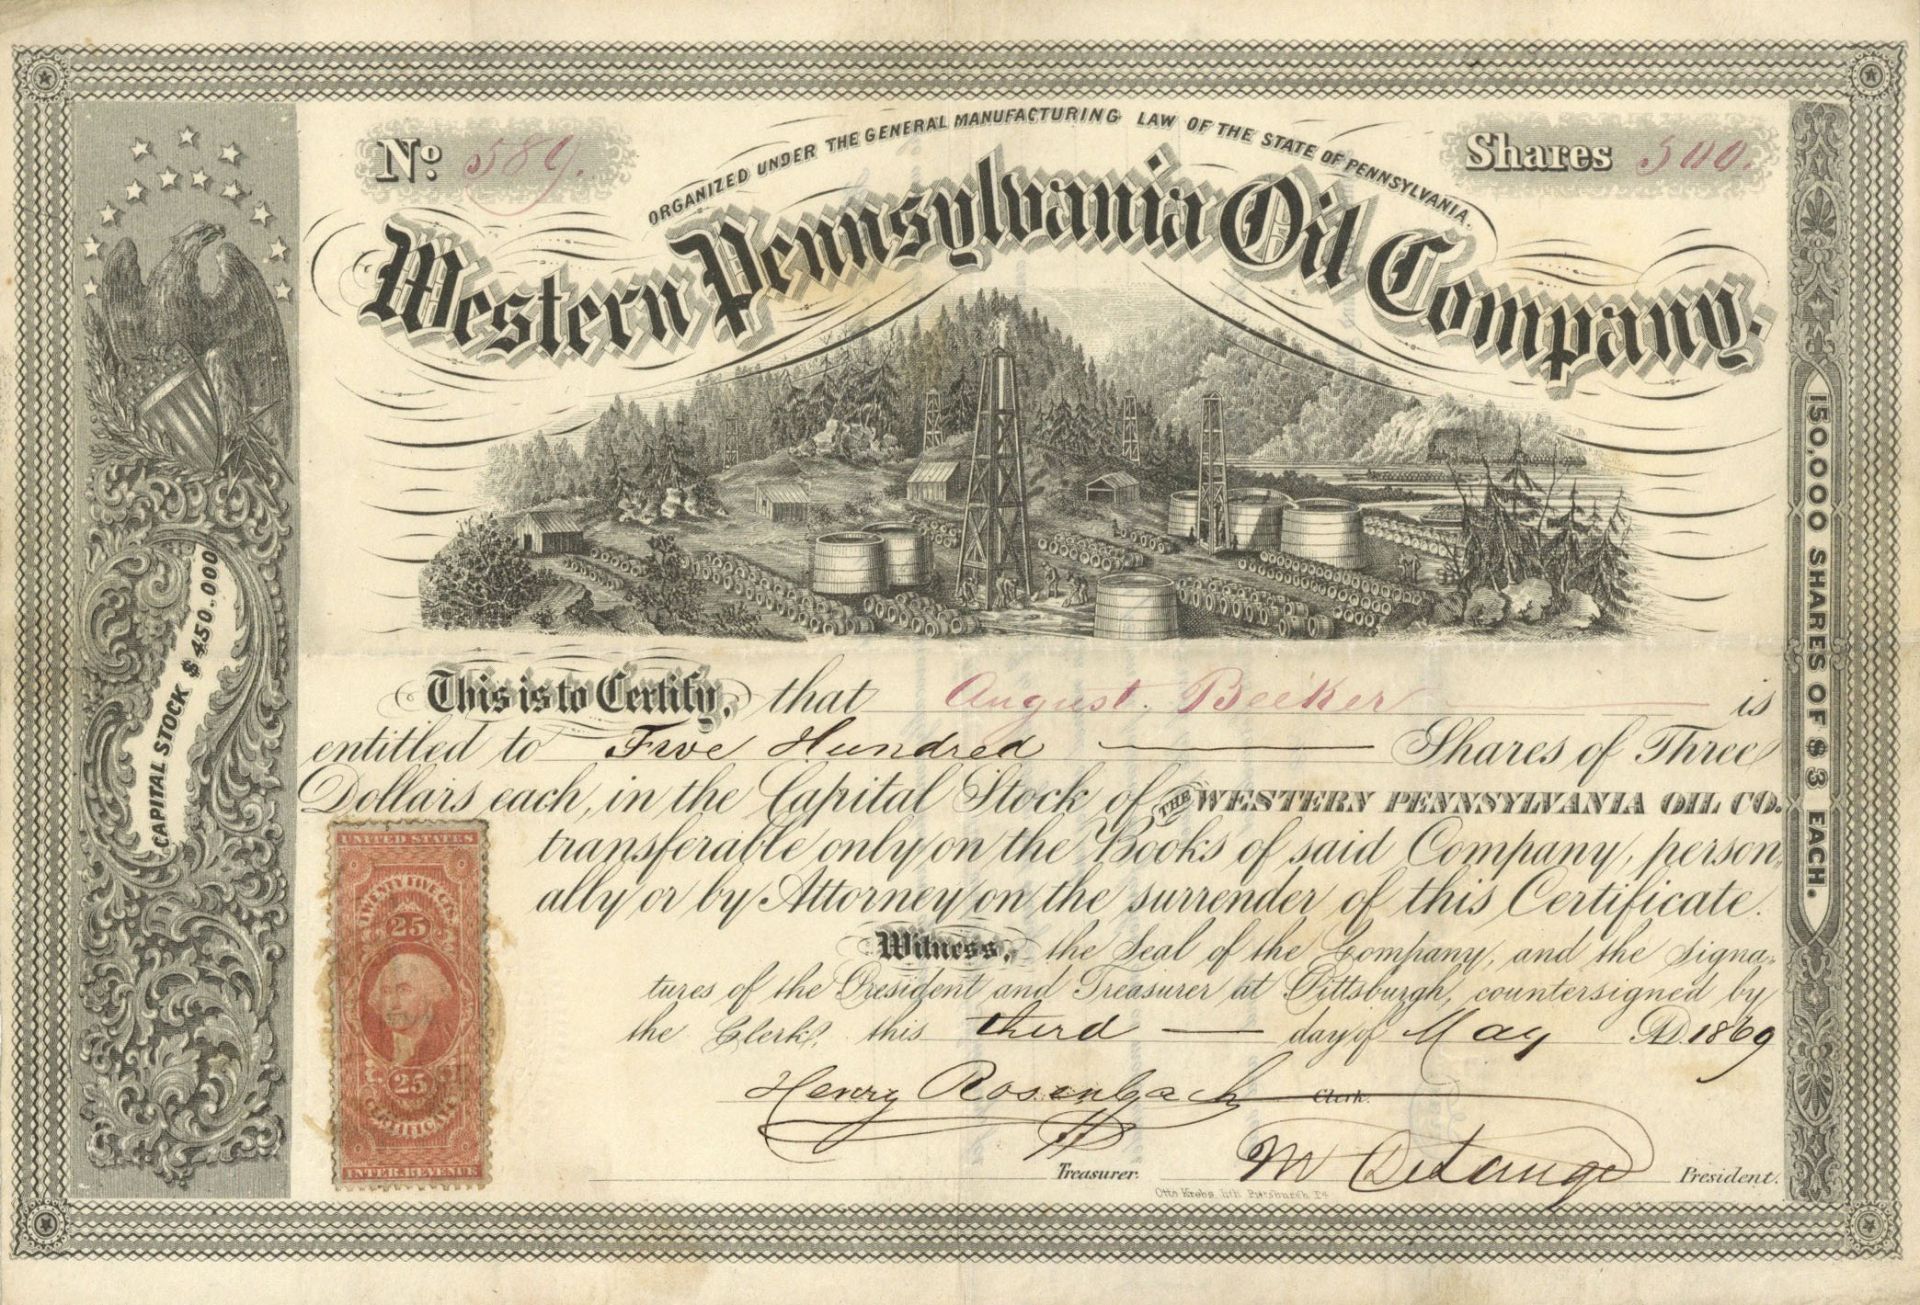 ORGANIZED UNDER THE GENERAL MANUFACTURING LAW OF THE STATE OF PENNSYLVANIA.
No: 589.
Shares 500.
Western Pennsylvania Oil Company.
CAPITAL STOCK $450.000
150,000 SHARES OF $3 EACH.
This is to Certify, that August. Becker is
entitled to Five Hundred Shares of Three
Dollars each, in the Capital Stock of THE WESTERN PENNSYLVANIA OIL CO.
transferable only on the Books of said Company, person,
ally or by Attorney on the surrender of this Certificate.
Witness, the Seal of the Company, and the signa,
tures of the President and Treasurer at Pittsburgh, countersigned by
the Clerk, this third day of May AD. 1869
Henry Rosenbach Clerk.
Treasurer.
President.
Otto Krebs, lith Pittsburgh Pa
UNITED STATES
TWENTY FIVE CTS.
25
25
CERTIFICATE
INTER. REVENUE